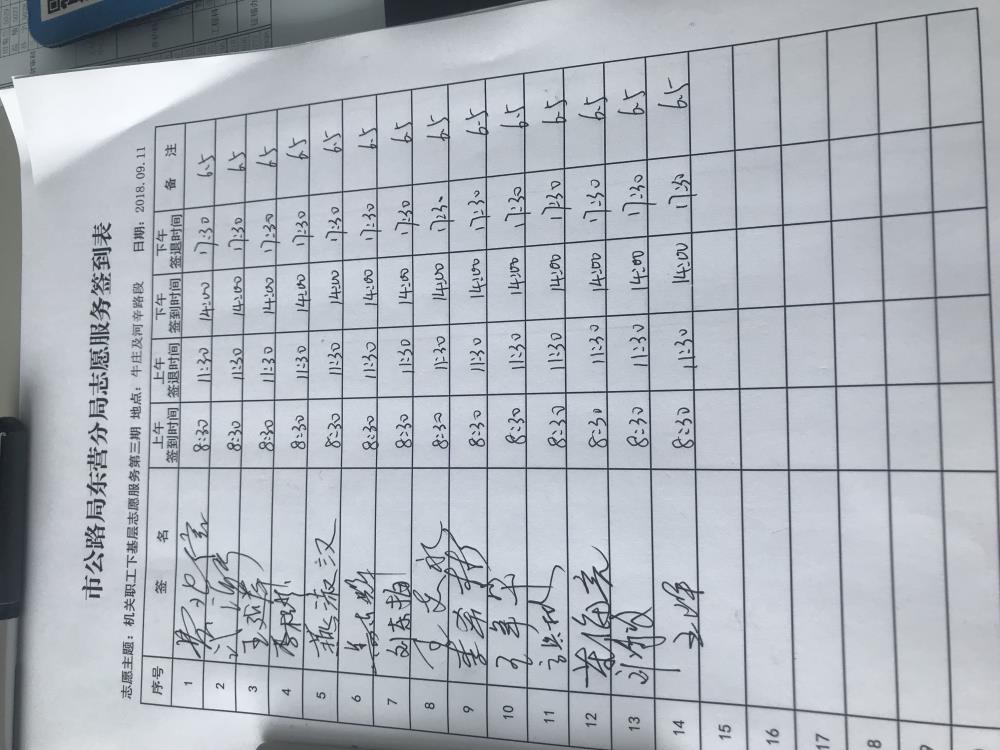 市公路局东营分局志愿服务签到表
志愿主题：机关职工下基层志愿服务第三期 地点：牛庄及河辛路段 日期：2018.09.11
序号 签 名 上午签到时间 上午签退时间 下午签到时间 下午签退时间 备 注
1 8:30 11:30 14:00 17:30 6.5
2 8:30 11:30 14:00 17:30 6.5
3 8:30 11:30 14:00 17:30 6.5
4 8:30 11:30 14:00 17:30 6.5
5 燕淑汉 8:30 11:30 14:00 17:30 6.5
6 8:30 11:30 14:00 17:30 6.5
7 刘东梅 8:30 11:30 14:00 17:30 6.5
8 8:30 11:30 14:00 17:30 6.5
9 8:30 11:30 14:00 17:30 6.5
10 8:30 11:30 14:00 17:30 6.5
11 8:30 11:30 14:00 17:30 6.5
12 8:30 11:30 14:00 17:30 6.5
13 8:30 11:30 14:00 17:30 6.5
14 8:30 11:30 14:00 17:30 6.5
15
16
17
18